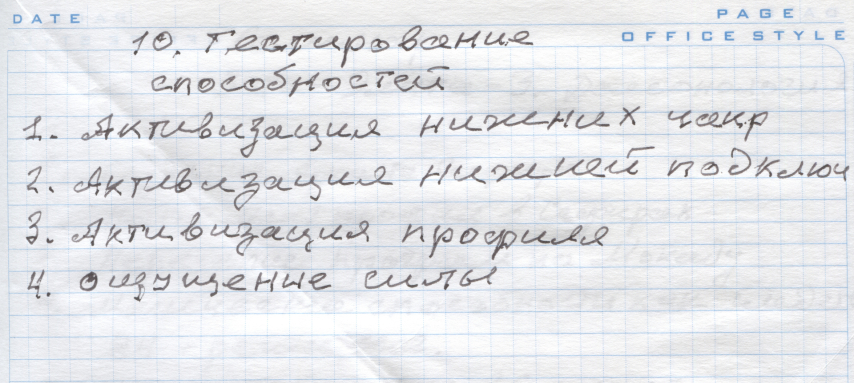 DATE
PAGE
OFFICE STYLE
10. Тестирование
способностей
1. Активизация нижних чакр
2. Активизация нижней подключ
3. Активизация профиля
4. Ощущение силы